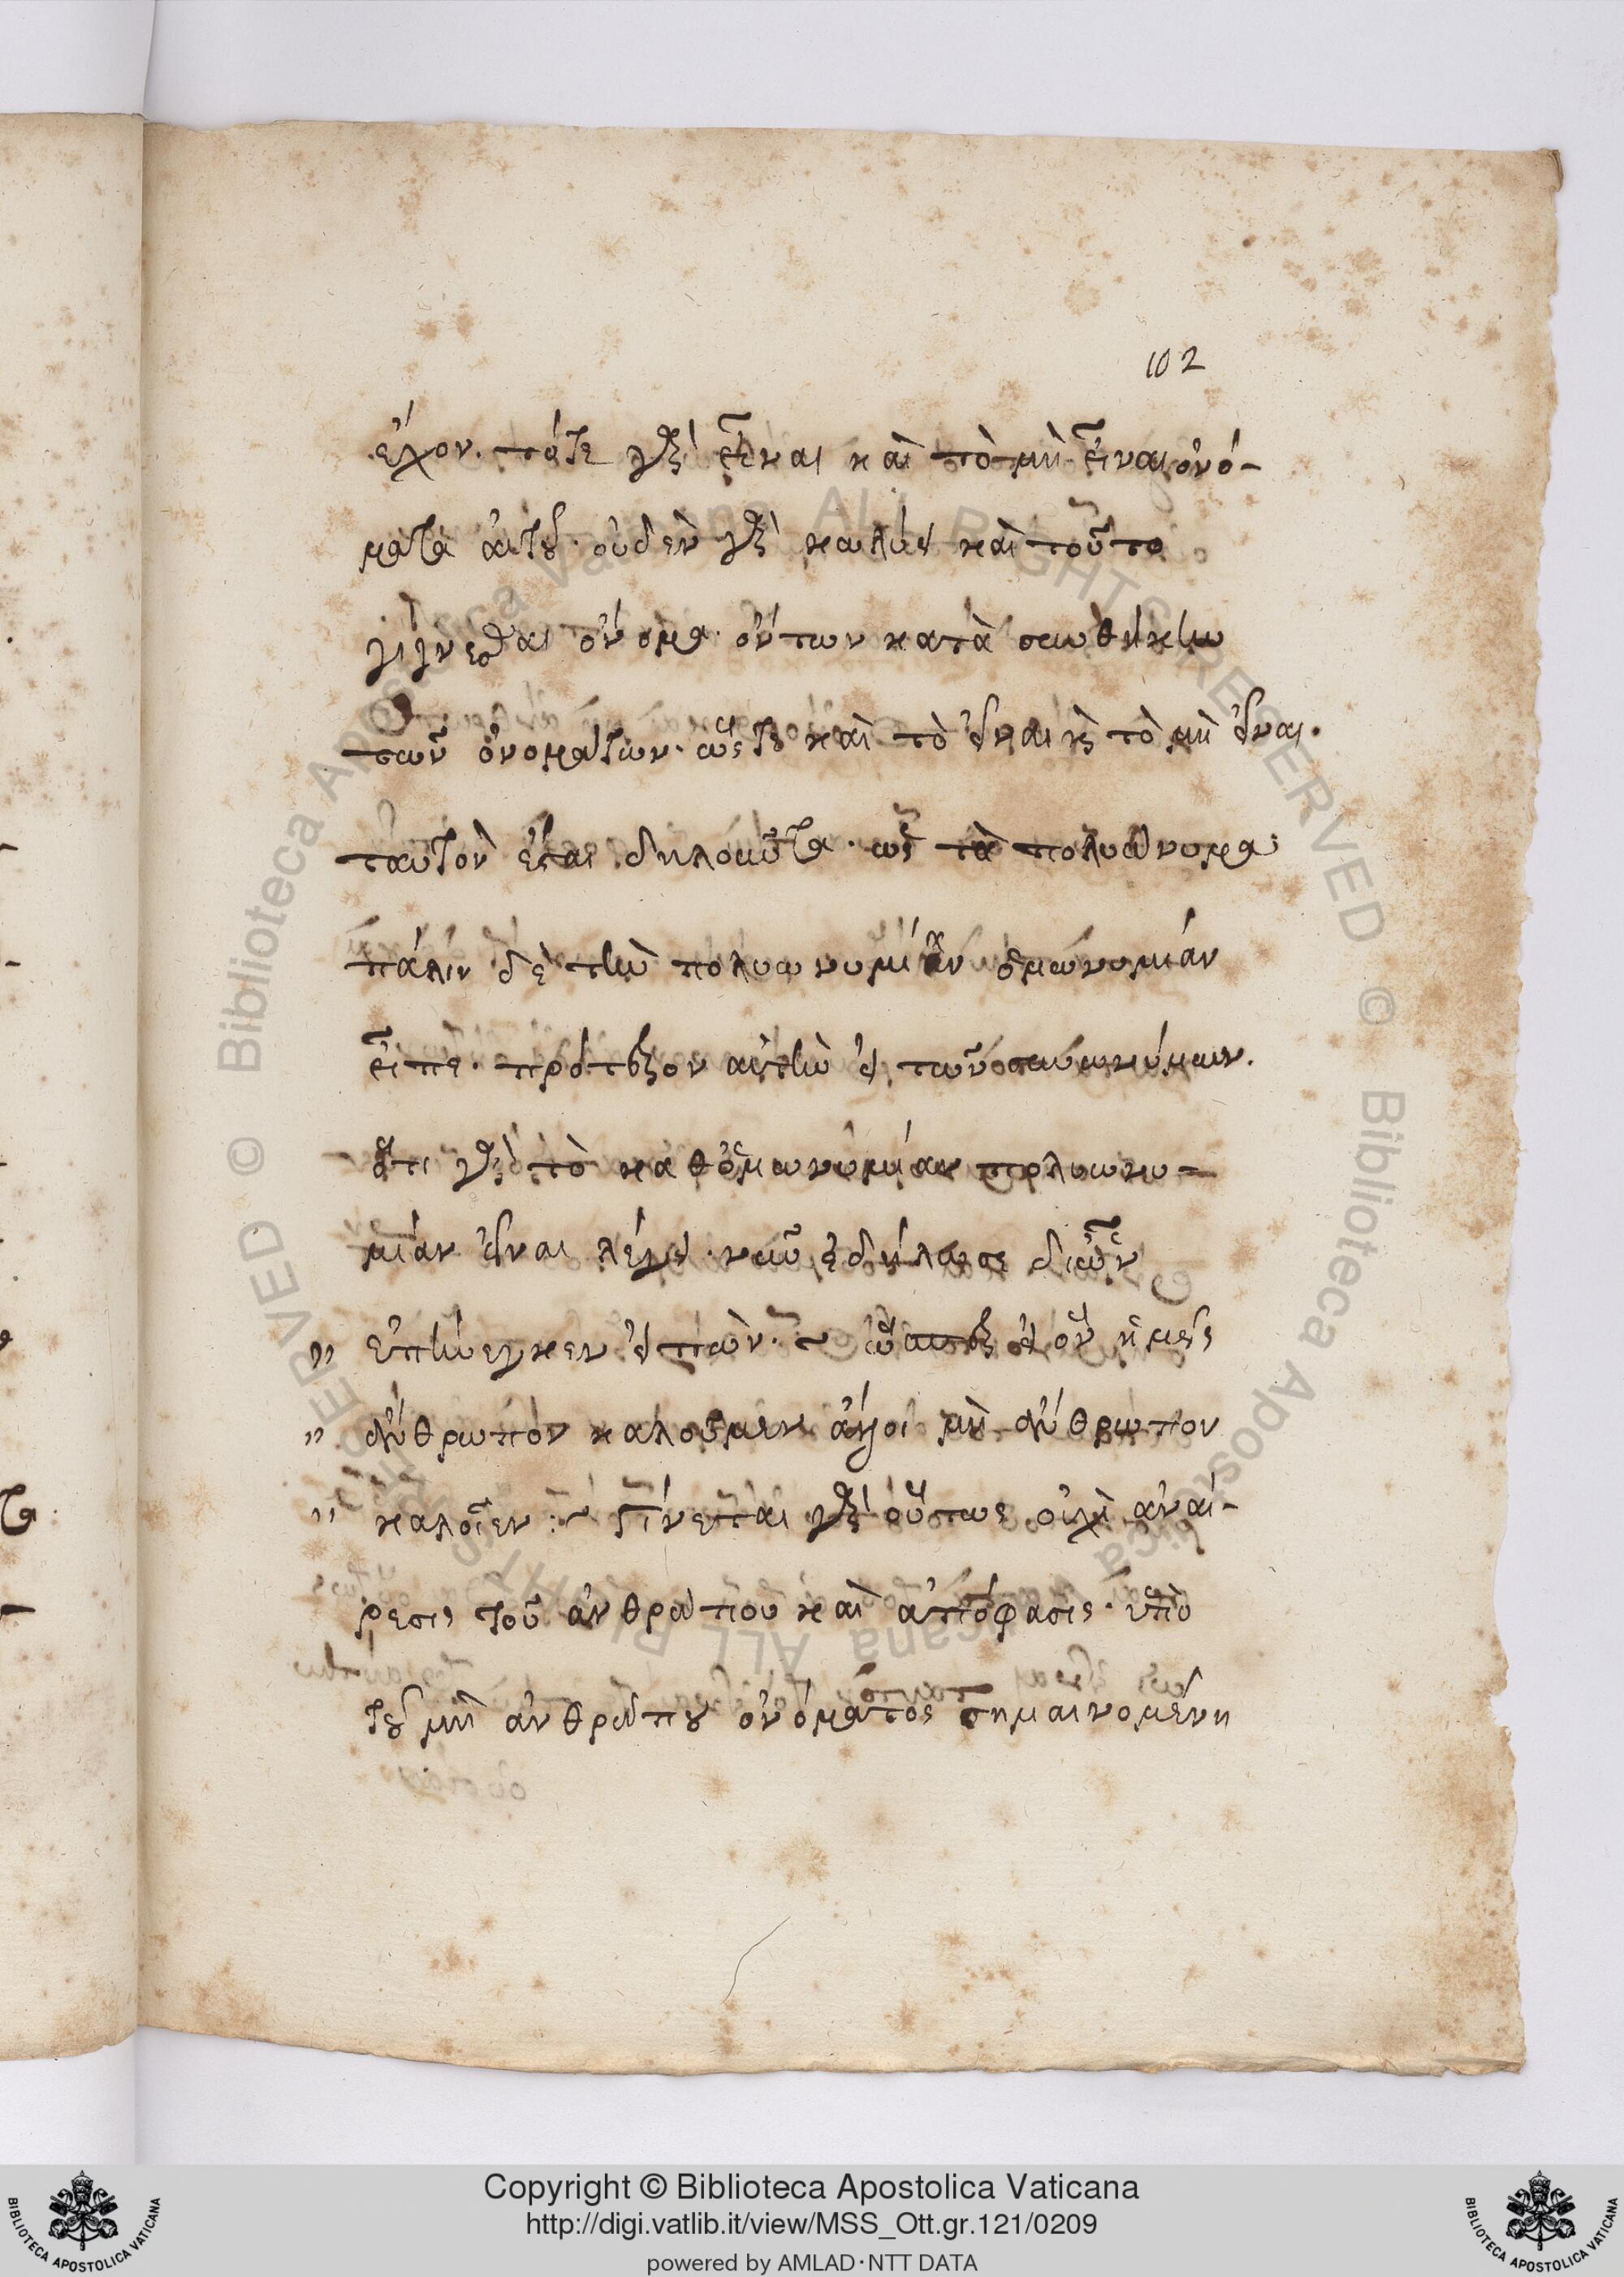 102
ἔχον. τό τε γὰρ εἶναι καὶ τὸ μὴ εἶναι ὀνό-
ματα αὐτοῦ· οὐδὲν γὰρ κωλύει καὶ τοῦτο
γίγνεσθαι ὄνομα· ὄντων κατὰ συνθήκην
τῶν ὀνομάτων. ὥστε καὶ τὸ εἶναι καὶ τὸ μὴ εἶναι.
ταυτὸν ἔσται δηλοῦντα. ὡς τὰ πολυώνυμα·
πάλιν δὲ τὴν πολυωνυμίαν ὁμωνυμίαν
εἶπε. πρότερον αὐτὴν εἰπὼν συνώνυμον.
ὅτι γὰρ τὸ καθ' ὁμωνυμίαν πολυωνυ-
μίαν εἶναι λέγει. νῦν ἐδήλωσε δι' ὧν
" ἐπήνεγκεν εἰπών. ~ ὥσπερ εἰ ὃν ἡμεῖς
" ἄνθρωπον καλοῦμεν ἄλλοι μὴ ἄνθρωπον
" καλοῖεν :~ Γίνεται γὰρ οὕτως οὐχὶ ἀναί-
ρεσις τοῦ ἀνθρώπου καὶ ἀπόφασις· ὑπὸ
τοῦ μὴ ἀνθρώπου ὀνόματος σημαινομένη
Copyright © Biblioteca Apostolica Vaticana
http://digi.vatlib.it/view/MSS_Ott.gr.121/0209
powered by AMLAD·NTT DATA
BIBLIOTECA APOSTOLICA VATICANA
BIBLIOTECA APOSTOLICA VATICANA
© Biblioteca Apostolica Vaticana ALL RIGHTS RESERVED © Biblioteca Apostolica Vaticana ALL RIGHTS RESERVED